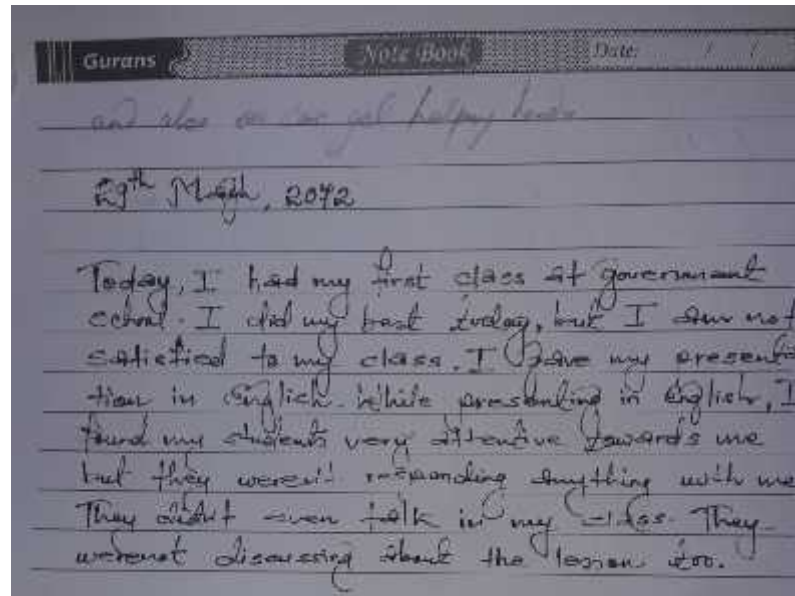 Gurans Note Book Date: / /
and also on can get helping hands
29th Magh, 2072
Today, I had my first class at government
school. I did my best today, but I am not
satisfied to my class. I gave my presenta-
tion in English. While presenting in English, I
found my students very attentive towards me
but they weren't responding anything with me
They didn't even talk in my class. They
werenot discussing about the lesson too.